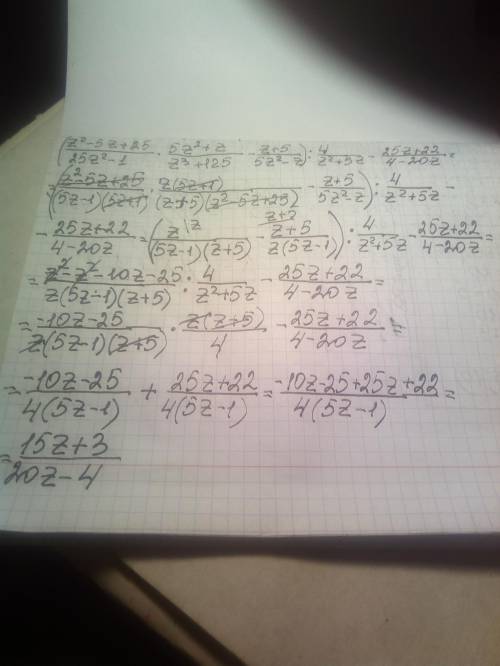 (z²-5z+25/25z²-1 · 5z²+z/z³+125 - z+5/5z²-z) : 4/z²+5z - 25z+22/4-20z =
= (z²-5z+25/(5z-1)(5z+1) · z(5z+1)/(z+5)(z²-5z+25) - z+5/5z²-z) : 4/z²+5z -
- 25z+22/4-20z = (z\z/(5z-1)(z+5) - z+5\z+5/z(5z-1)) : 4/z²+5z - 25z+22/4-20z =
= z²-z²-10z-25/z(5z-1)(z+5) : 4/z²+5z - 25z+22/4-20z =
= -10z-25/z(5z-1)(z+5) · z(z+5)/4 - 25z+22/4-20z =
= -10z-25/4(5z-1) + 25z+22/4(5z-1) = -10z-25+25z+22/4(5z-1) =
= 15z+3/20z-4